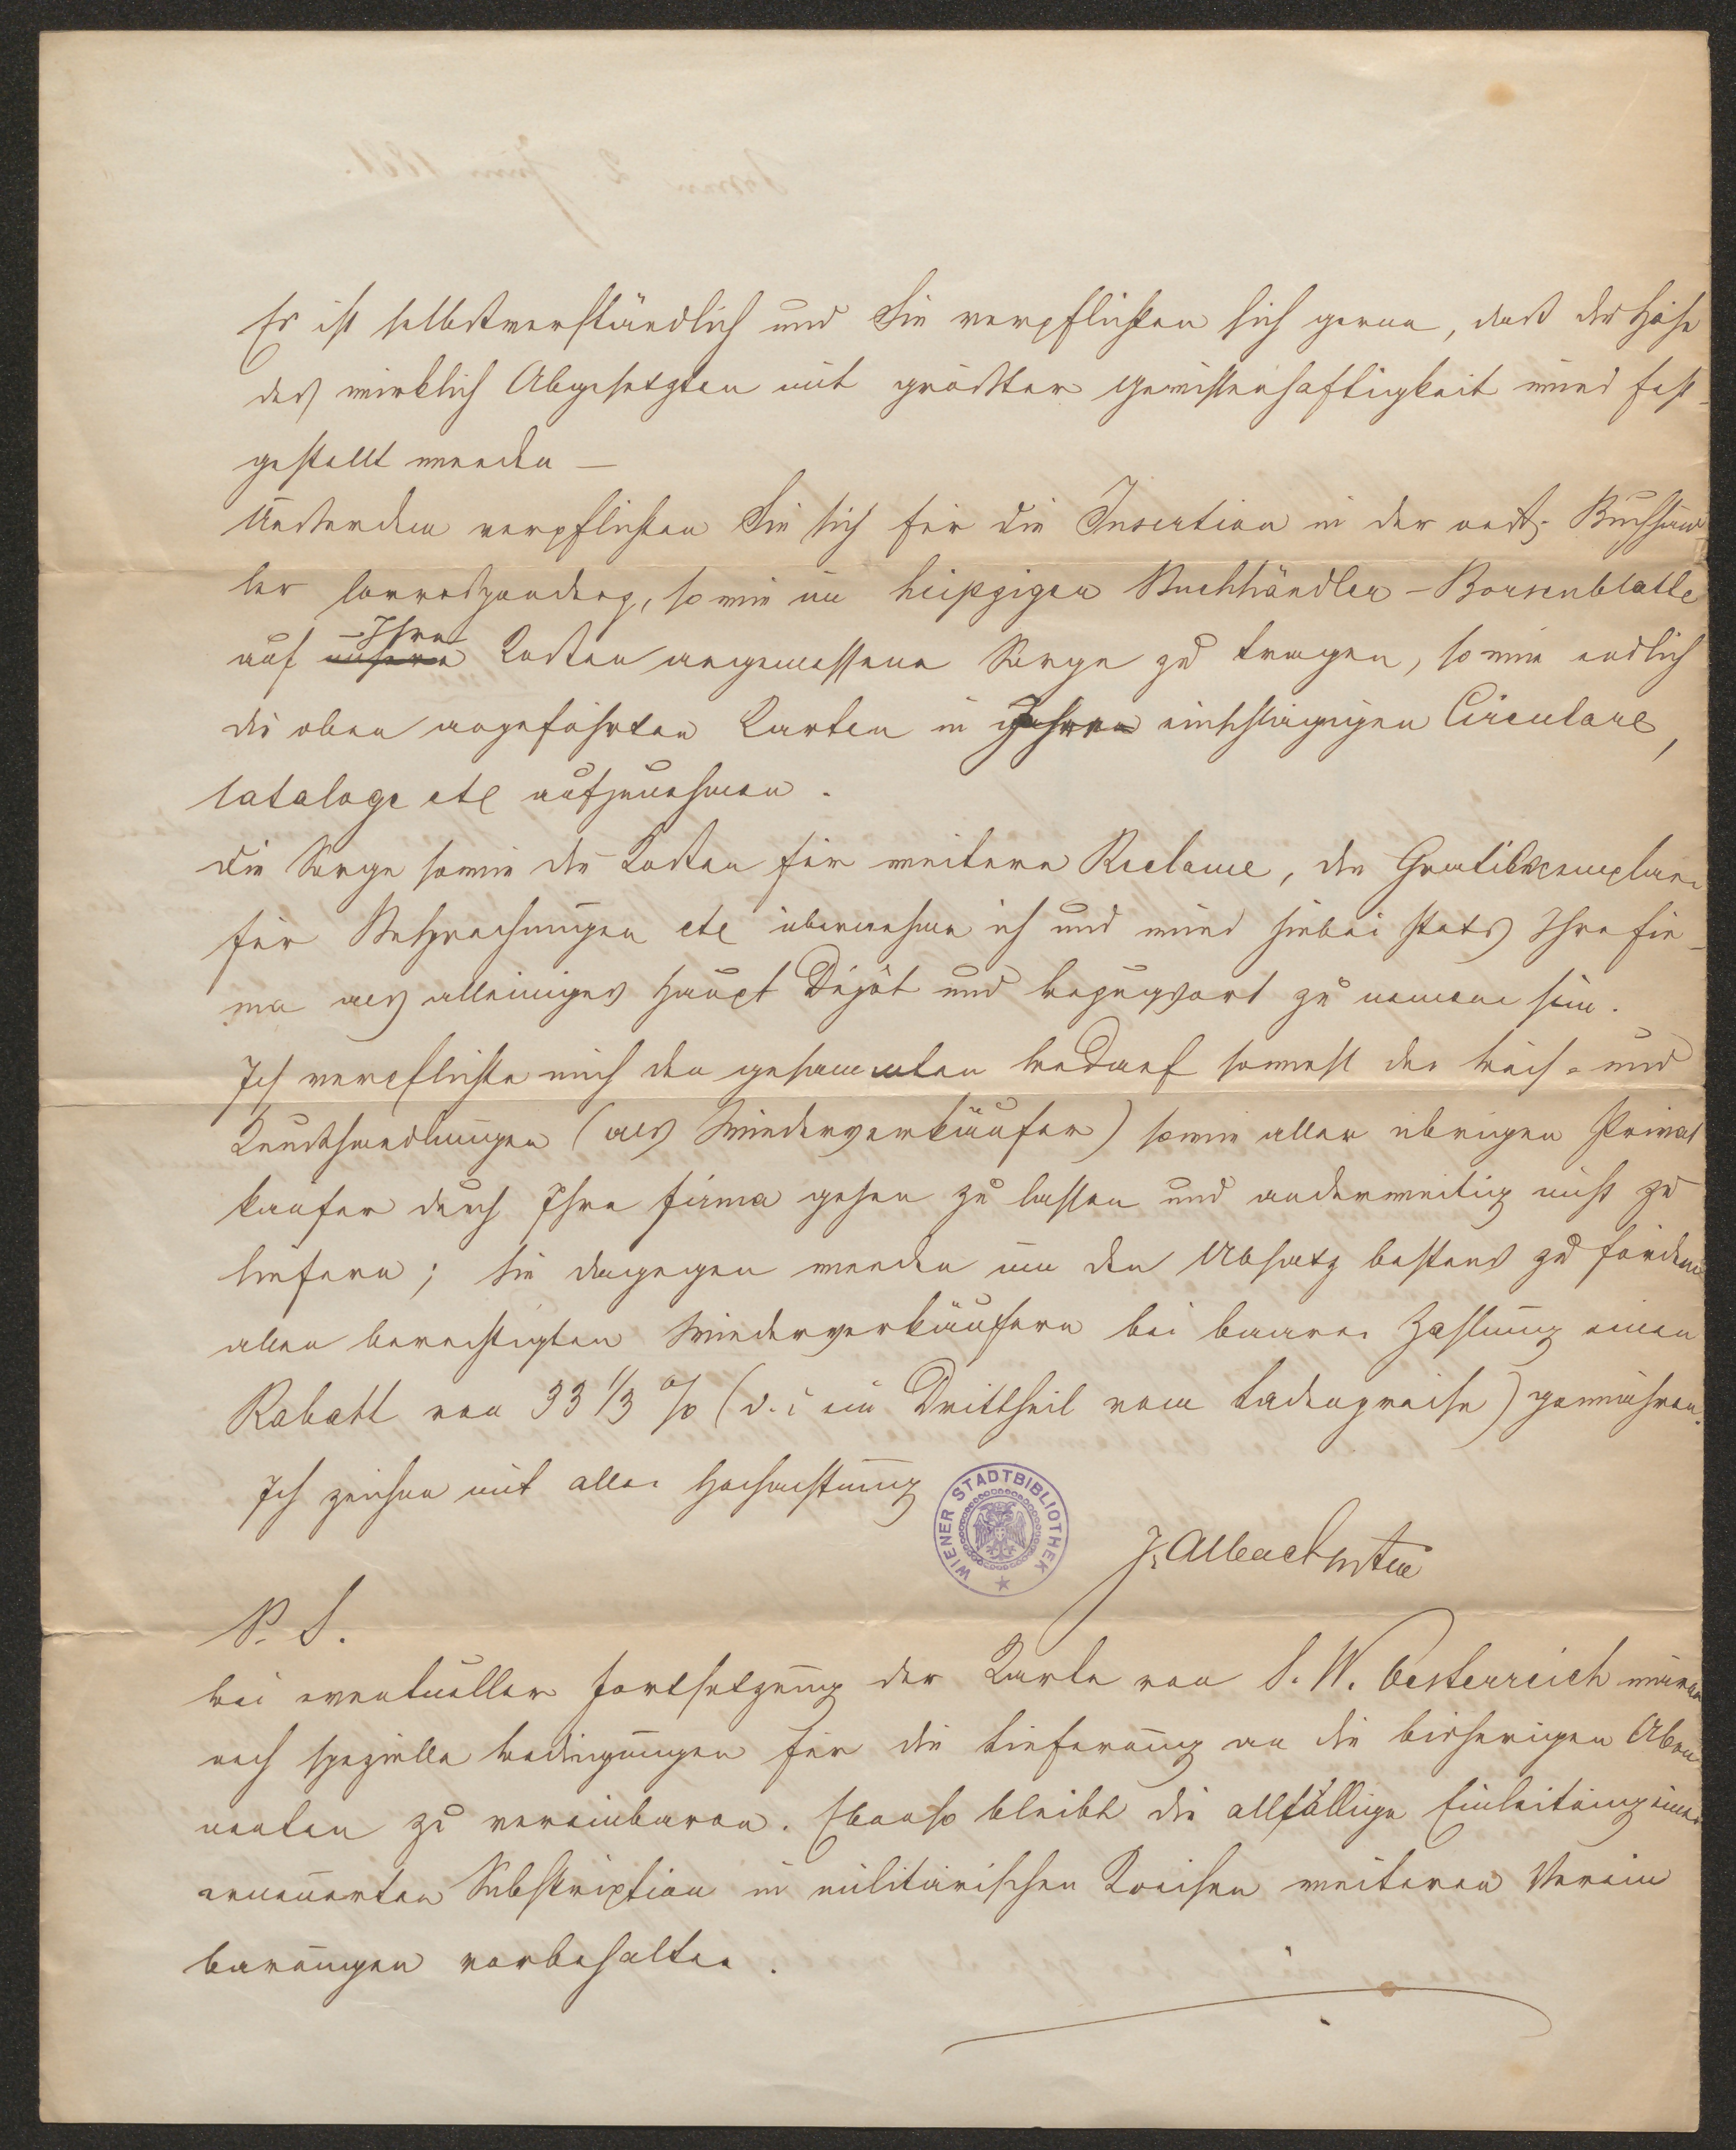 Es ist selbstverständlich und Sie verpflichten sich gerne, daß die Höhe
des wirklich Abgesetzten mit größter Gewissenhaftigkeit wird fest-
gestellt werden —
Außerdem verpflichten Sie sich für die Insertion in der oest. Buchhänd
ler Correspondenz, sowie im Leipziger Buchhändler-Börsenblatte
auf Ihre Kosten angemessene Sorge zu tragen, sowie endlich
die oben angeführten Karten in einschlägigen Circulare,
Cataloge etc aufzunehmen.
Die Sorge sowie die Kosten für weitere Reclame, die Gratisexemplare
für Besprechungen etc übernehme ich und wird hiebei stets Ihre Fir-
ma als alleiniges Haupt Dépôt und Bezugsort zu nennen sein.
Ich verpflichte mich den gesammten Bedarf sowohl der Buch- und
Kunsthandlungen (als Wiederverkäufer) sowie aller übrigen Privat
käufer durch Ihre Firma gehen zu lassen und anderweitig nicht zu
liefern; Sie dagegen werden um den Absatz bestens zu fördern
allen berechtigten Wiederverkäufern bei baarer Zahlung einen
Rabatt von 33 1/3 % (d. i. ein Drittheil vom Ladenpreise) gewähren.
Ich zeichne mit aller Hochachtung
WIENER STADTBIBLIOTHEK
J. Albach
P. S.
Bei eventueller Fortsetzung der Karte von S. W. Oesterreich wären
noch spezielle Bedingungen für die Lieferung an die bisherigen Abon
nenten zu vereinbaren. Ebenso bleibt die allfällige Einleitung einer
erneuerten Subskription in militärischen Kreisen weiteren Verein
barungen vorbehalten.